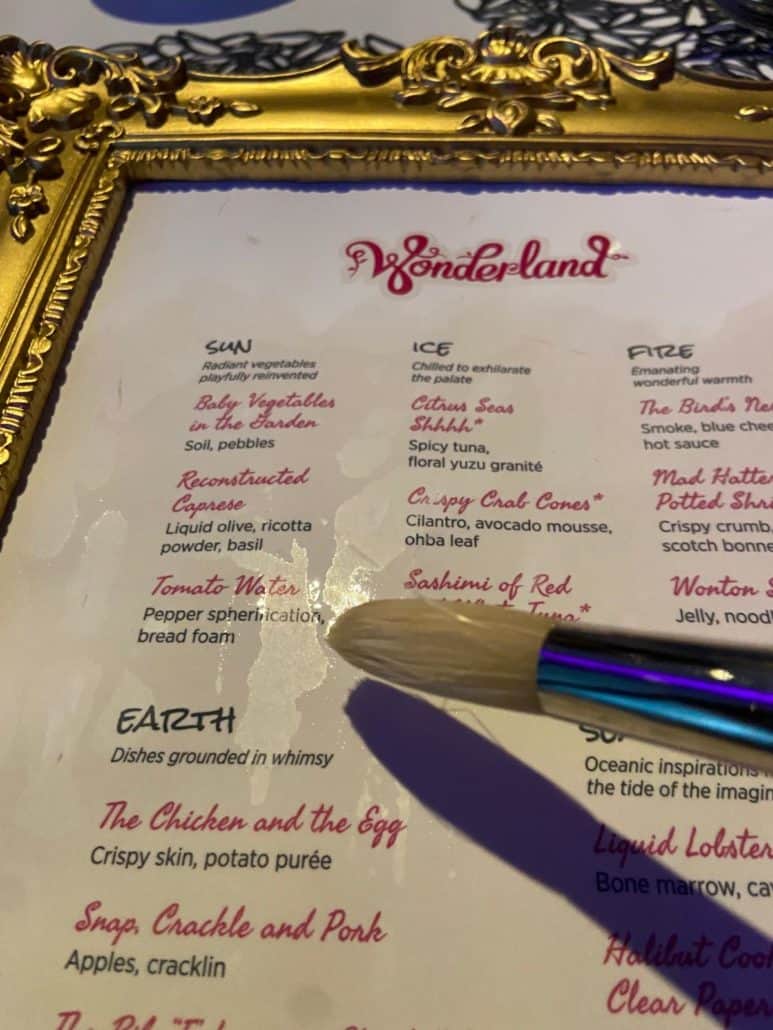 Wonderland
SUN
Radiant vegetables
playfully reinvented
Baby Vegetables
in the Garden
Soil, pebbles
Reconstructed
Caprese
Liquid olive, ricotta
powder, basil
Tomato Water
Pepper spherification,
bread foam
ICE
Chilled to exhilarate
the palate
Citrus Seas
Shhhh*
Spicy tuna,
floral yuzu granité
Crispy Crab Cones*
Cilantro, avocado mousse,
ohba leaf
Sashimi of Red
Tuna*
FIRE
Emanating
wonderful warmth
The Bird's
Smoke, blue
hot sauce
Mad
Potted
Crispy crumb,
scotch
Wonton
Jelly,
EARTH
Dishes grounded in whimsy
The Chicken and the Egg
Crispy skin, potato purée
Snap, Crackle and Pork
Apples, cracklin
The
Oceanic inspirations
the tide of the
Liquid Lobster
Bone marrow,
Halibut
Clear